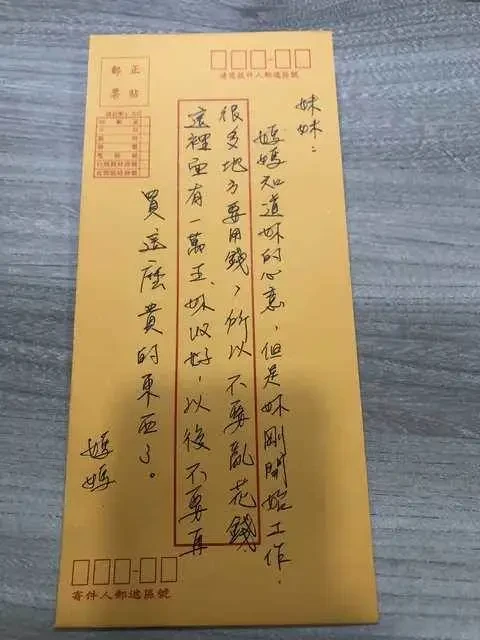 請寫收件人郵遞區號
正貼
郵票
妹妹：
媽媽知道妳的心意，但是妳剛開始工作，
很多地方要用錢，所以不要亂花錢
這裡面有一萬五、妳收好，以後不要再
買這麼貴的東西了。
媽媽
寄件人郵遞區號